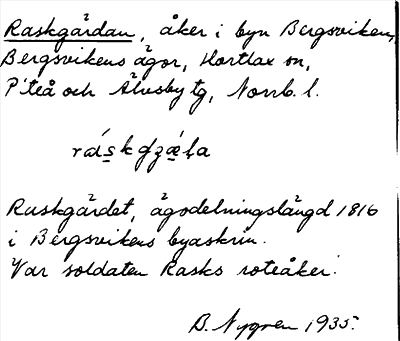 Raskgärdan, åker i byn Bergsviken,
Bergsvikens ägor, Hortlax sn,
Piteå och Älvsby tg, Norrb. l.
Raskgärdet, ägodelningslängd 1816
i Bergsvikens byaskrin.
Var soldaten Rasks roteåker.
B. Nygren 1935.